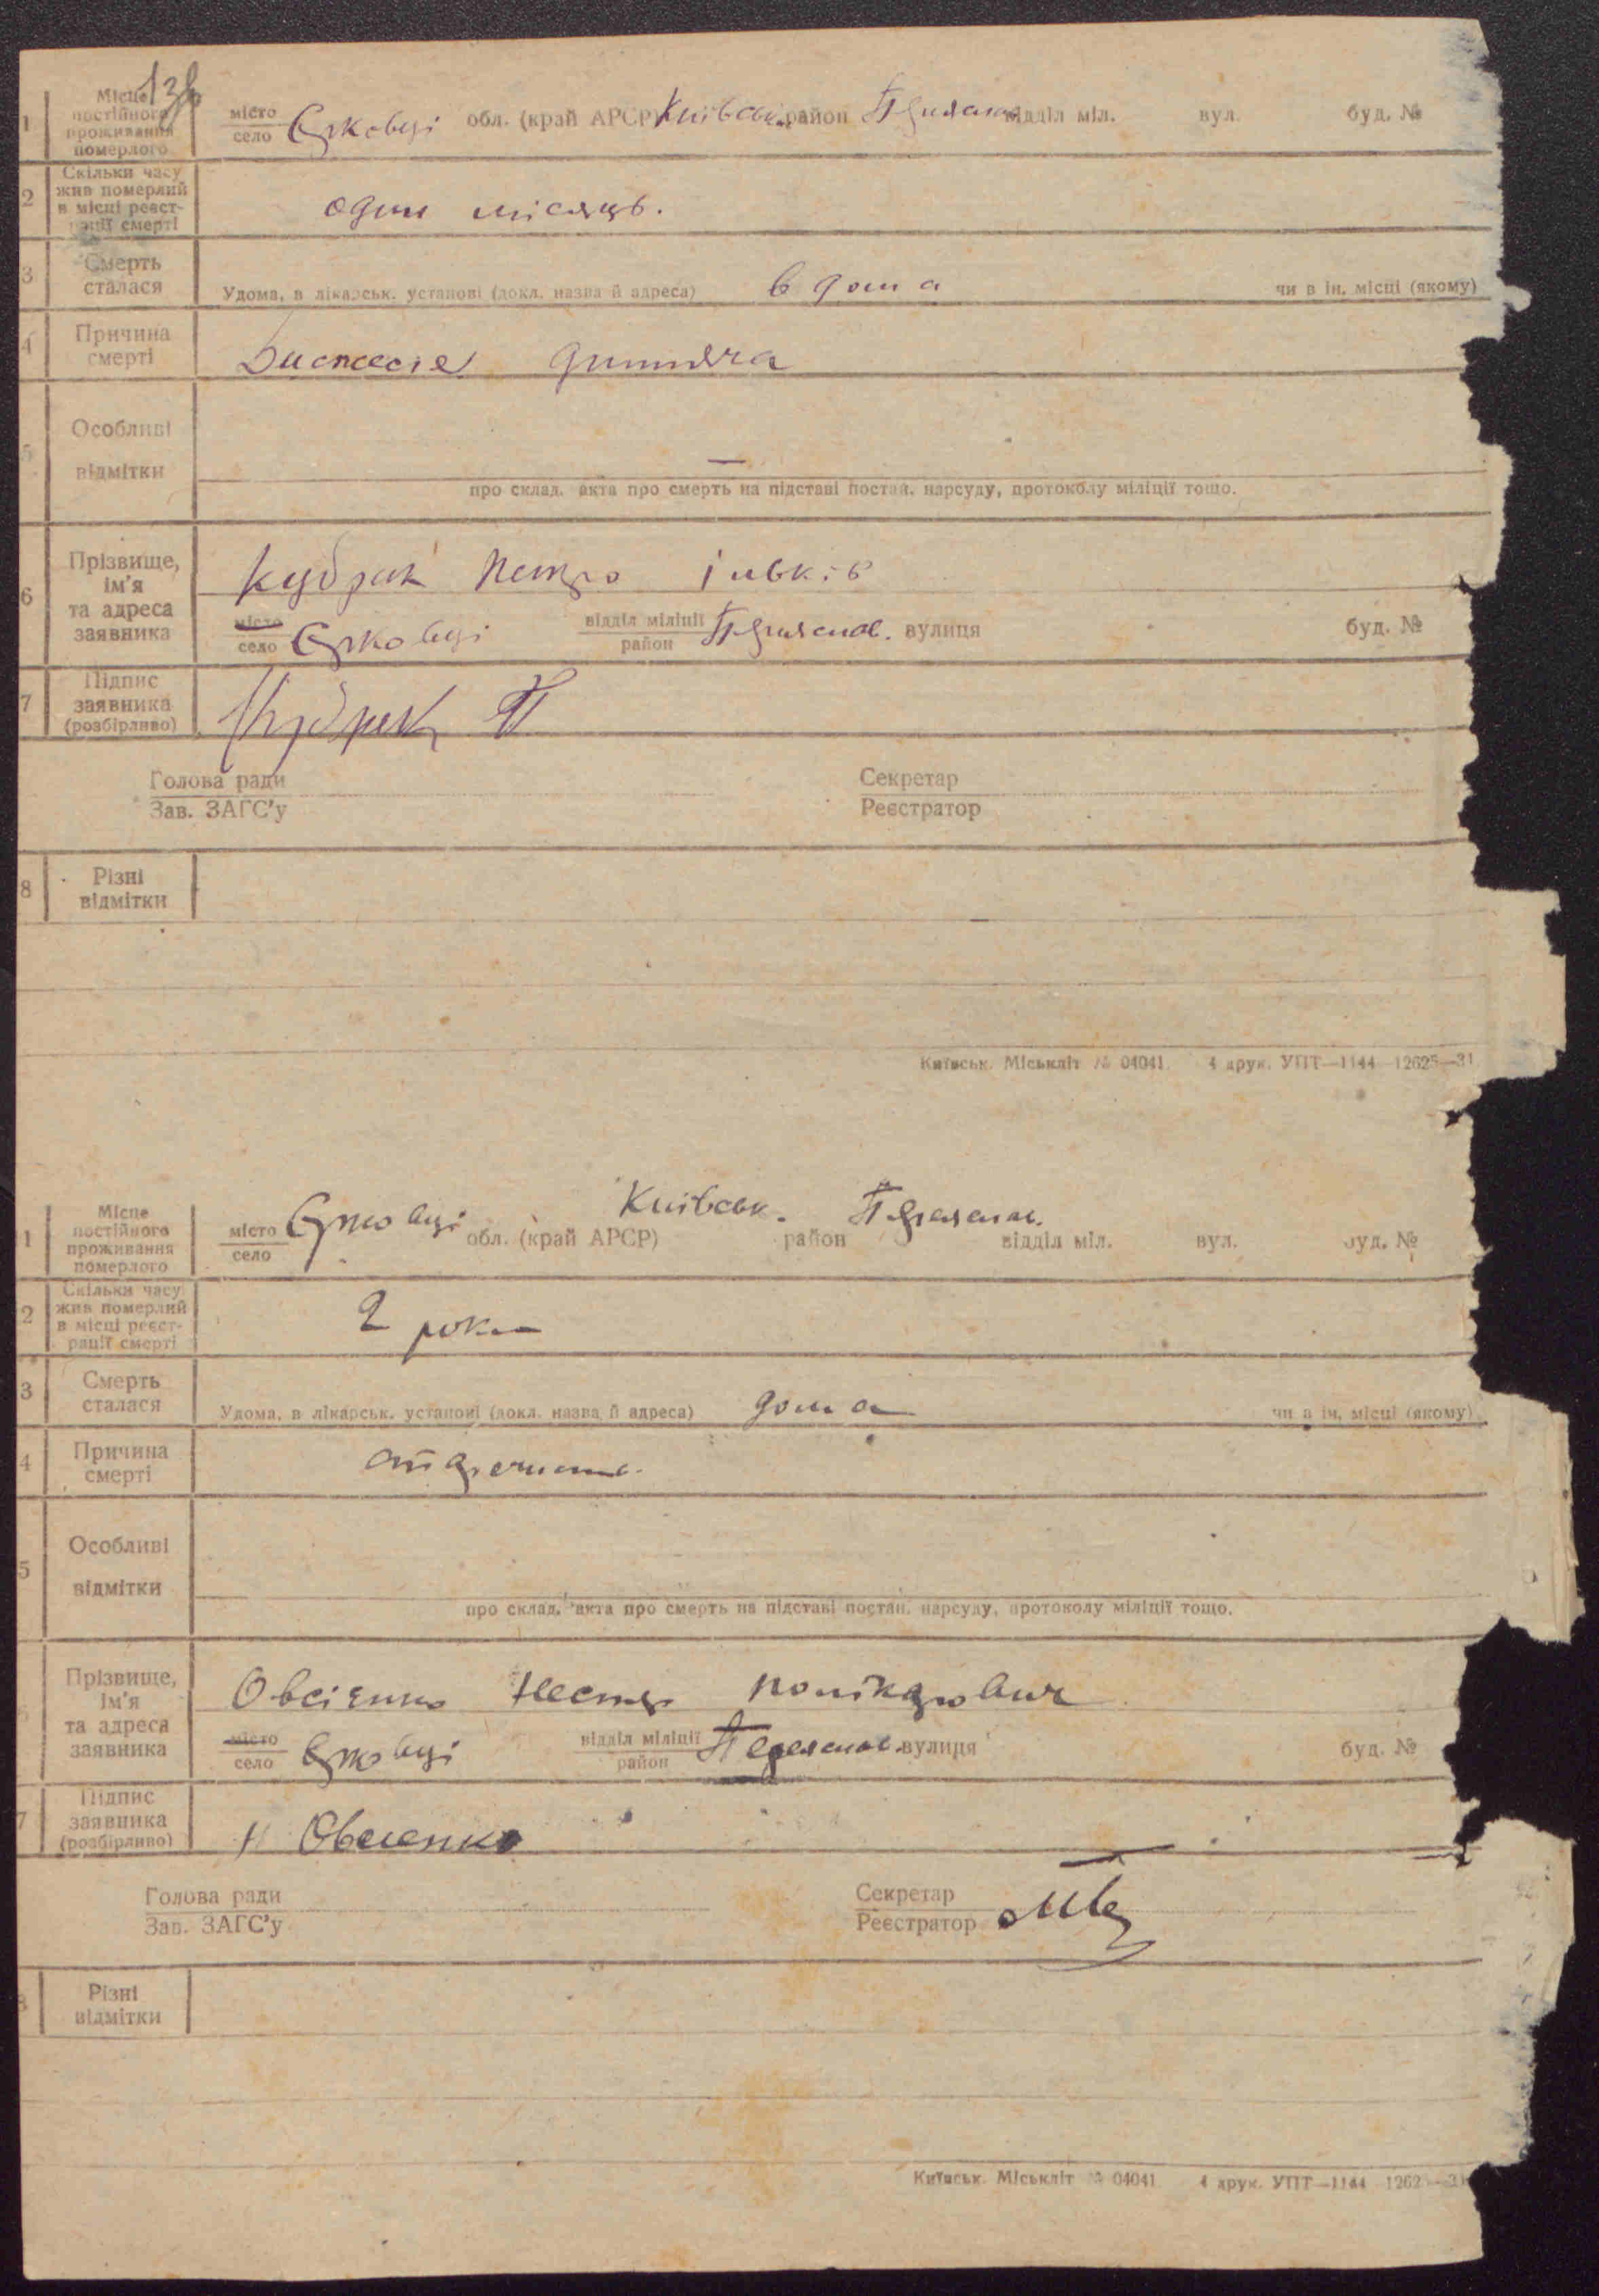 138
1 Місце постійного проживання померлого місто село Єрковці обл. (край АРСР) Київськ. район Переяслав. відділ міл. вул. буд. №
2 Скільки часу жив померлий в місці реєстрації смерті один місяць.
3 Смерть сталася Удома, в лікарськ. установі (докл. назва й адреса) в дома чи в ін. місці (якому)
4 Причина смерті Диспесія дитяча
5 Особливі відмітки —
про склад. акта про смерть на підставі постан. нарсуду, протоколу міліції тощо.
6 Прізвище, ім'я та адреса заявника Кубрак Петро
місто село Єрковці відділ міліції район Переяслав. вулиця буд. №
7 Підпис заявника (розбірливо) Кубрак П
Голова ради Секретар
Зав. ЗАГС'у Реєстратор
8 Різні відмітки
Київськ. Міськліт № 04041 4 друк. УПТ—1144 12625—31
1 Місце постійного проживання померлого місто село Єрковці обл. (край АРСР) Київськ. район Переяслав. відділ міл. вул. буд. №
2 Скільки часу жив померлий в місці реєстрації смерті 2 роки
3 Смерть сталася Удома, в лікарськ. установі (докл. назва й адреса) дома чи в ін. місці (якому)
4 Причина смерті
5 Особливі відмітки
про склад. акта про смерть на підставі постан. нарсуду, протоколу міліції тощо.
Прізвище, ім'я та адреса заявника Овсієнко Нестер Полікарпович
місто село Єрковці відділ міліції район Переяслав. вулиця буд. №
7 Підпис заявника (розбірливо) Н Овсиенко
Голова ради Секретар
Зав. ЗАГС'у Реєстратор
Різні відмітки
Київськ. Міськліт № 04041 4 друк. УПТ—1144 1262 —31